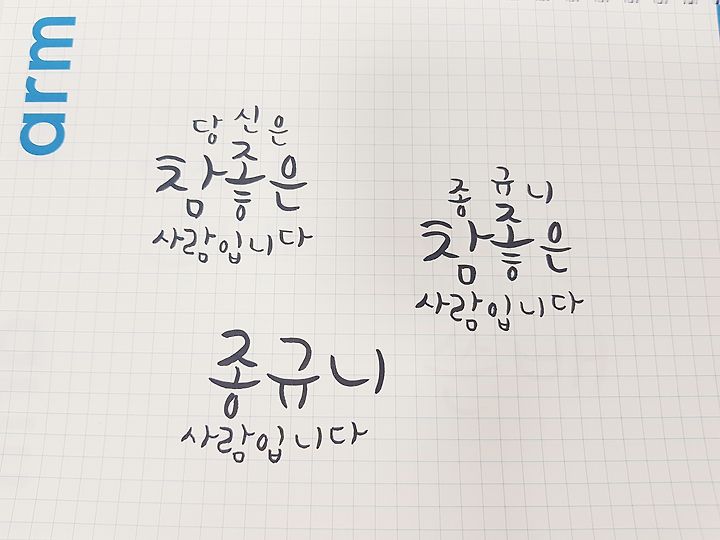 arm
당신은
참좋은
사람입니다
종규니
참좋은
사람입니다
종규니
사람입니다